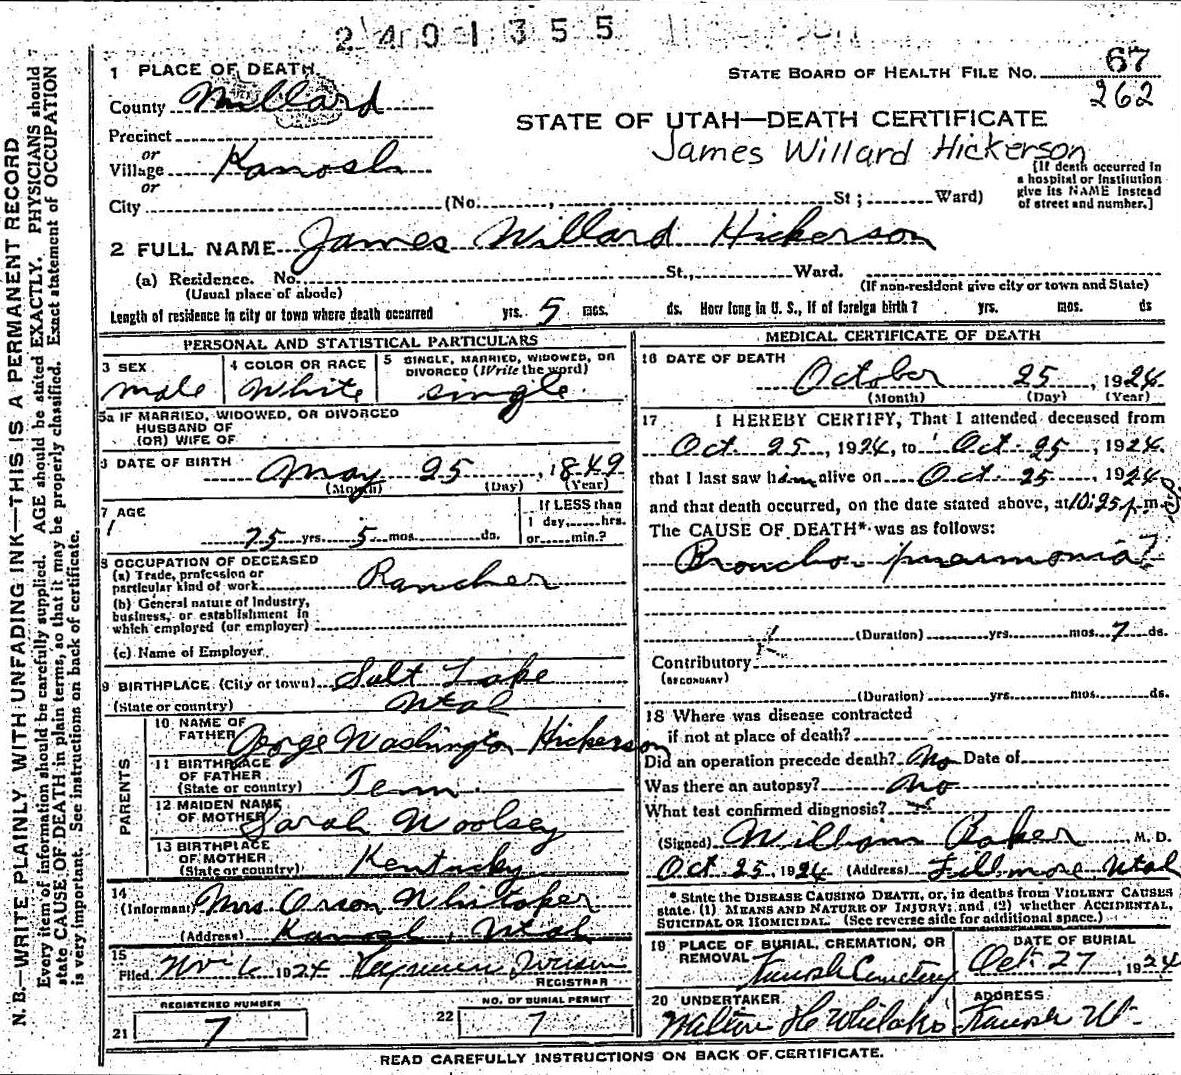 2401355
1 PLACE OF DEATH
STATE BOARD OF HEALTH FILE NO. 67
262
County Millard
STATE OF UTAH—DEATH CERTIFICATE
James Willard Hickerson
Precinct
or
Village Kanosh
or
City (No. , St; Ward)
[If death occurred in
a hospital or institution
give its NAME instead
of street and number.]
2 FULL NAME James Willard Hickerson
(a) Residence. No. St., Ward.
(Usual place of abode)
(If non-resident give city or town and State)
Length of residence in city or town where death occurred yrs. 5 mos. ds. How long in U. S., if of foreign birth? yrs. mos. ds
PERSONAL AND STATISTICAL PARTICULARS
3 SEX
male
4 COLOR OR RACE
White
5 SINGLE, MARRIED, WIDOWED, OR
DIVORCED (Write the word)
single
5a IF MARRIED, WIDOWED, OR DIVORCED
HUSBAND OF
(OR) WIFE OF
6 DATE OF BIRTH May 25, 1849
(Month) (Day) (Year)
7 AGE
75 yrs. 5 mos. ds.
If LESS than
1 day, hrs.
or min.?
8 OCCUPATION OF DECEASED
(a) Trade, profession or
particular kind of work Rancher
(b) General nature of Industry,
business, or establishment in
which employed (or employer)
(c) Name of Employer
9 BIRTHPLACE (City or town) Salt Lake
(State or country) Utah
PARENTS
10 NAME OF
FATHER George Washington Hickerson
11 BIRTHPLACE
OF FATHER
(State or country) Tenn.
12 MAIDEN NAME
OF MOTHER Sarah Woolsey
13 BIRTHPLACE
OF MOTHER
(State or country) Kentucky
14
(Informant) Mrs Orson Whitaker
(Address) Kanosh, Utah
15
Filed Nov 1924
REGISTRAR
REGISTERED NUMBER
21 7
NO. OF BURIAL PERMIT
22 7
MEDICAL CERTIFICATE OF DEATH
16 DATE OF DEATH
October 25, 1924
(Month) (Day) (Year)
17 I HEREBY CERTIFY, That I attended deceased from
Oct. 25, 1924, to Oct. 25, 1924
that I last saw him alive on Oct. 25, 1924
and that death occurred, on the date stated above, at 10:25 p.m.
The CAUSE OF DEATH* was as follows:
Broncho pneumonia?
(Duration) yrs. mos. 7 ds.
Contributory
(SECONDARY)
(Duration) yrs. mos. ds.
18 Where was disease contracted
if not at place of death?
Did an operation precede death? No Date of
Was there an autopsy? No
What test confirmed diagnosis?
(Signed) William Baker M. D.
Oct 25, 1924 (Address) Fillmore Utah
*State the DISEASE CAUSING DEATH, or, in deaths from VIOLENT CAUSES
state (1) MEANS AND NATURE OF INJURY; and (2) whether ACCIDENTAL,
SUICIDAL OR HOMICIDAL. (See reverse side for additional space.)
19 PLACE OF BURIAL, CREMATION, OR
REMOVAL
Kanosh Cemetery
DATE OF BURIAL
Oct 27, 1924
20 UNDERTAKER
Milton H Whitaker
ADDRESS
Kanosh Ut.
READ CAREFULLY INSTRUCTIONS ON BACK OF CERTIFICATE.
N. B.—WRITE PLAINLY WITH UNFADING INK—THIS IS A PERMANENT RECORD
Every item of information should be carefully supplied. AGE should be stated EXACTLY. PHYSICIANS should
state CAUSE OF DEATH in plain terms, so that it may be properly classified. Exact statement of OCCUPATION
is very important. See instructions on back of certificate.